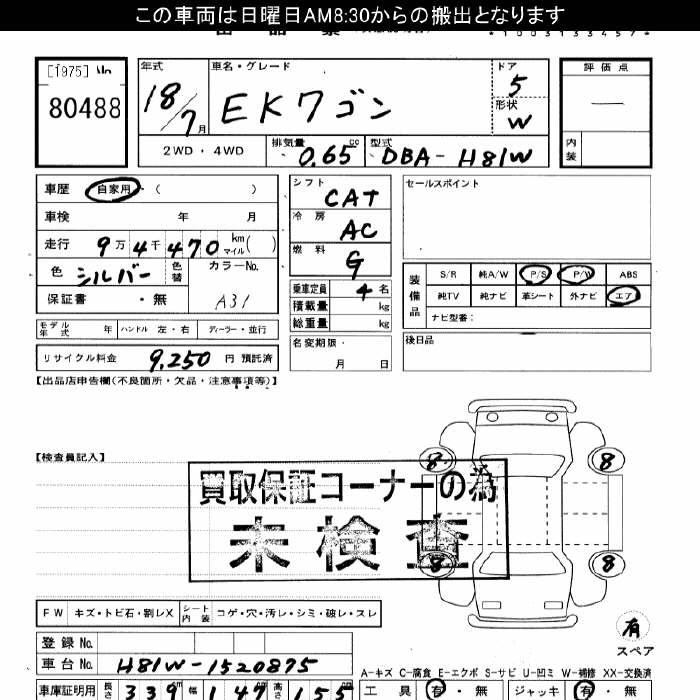 この車両は日曜日AM8:30からの搬出となります
*1003133457*
[1975] No
80488
年式
18/7月
車名・グレード
EKワゴン
ドア
5
形状
W
評価点
—
内装
2WD・4WD
排気量
0.65 cc
型式
DBA-H81W
車歴 自家用 ( )
車検 年 月
走行 9万4千470 km マイル ( )
色 シルバー 色替 カラーNo.
保証書 ・無 A31
モデル年式 年 ハンドル 左・右 ディーラー・並行
リサイクル料金 9,250 円 預託済
シフト CAT
冷房 AC
燃料 G
乗車定員 4 名
積載量 kg
総重量 kg
名変期限・
月 日
セールスポイント
装備品
S/R 純A/W P/S P/W ABS
純TV 純ナビ 革シート 外ナビ エア
ナビ型番:
後日品
【出品店申告欄(不良箇所・欠品・注意事項等)】
【検査員記入】
買取保証コーナーの為
未検査
8 8
8 8
有
スペア
FW キズ・トビ石・割レX シート内装 コゲ・穴・汚レ・シミ・破レ・スレ
登録No.
車台No. H81W-1520875
A-キズ C-腐食 E-エクボ S-サビ U-凹ミ W-補修 XX-交換済
車庫証明用 長さ 339 幅 147 高さ 155
工具 有・無 ジャッキ 有・無